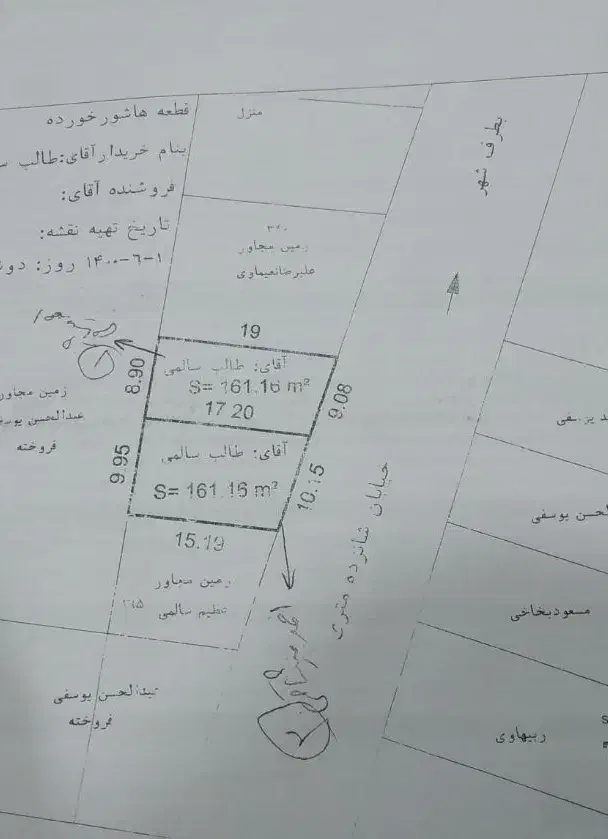 قطعه هاشورخورده
بنام خریدارآقای:طالب
فروشنده آقای:
تاریخ تهیه نقشه:
۱-۶-۱۴۰۰ روز: دو
منزل
بطرف شهر
زمین مجاور
علیرضانعیماوی
19
آقای: طالب سالمی
S= 161.16 m²
17.20
8.90
9.08
آقای: طالب سالمی
S= 161.16 m²
9.95
10.15
15.19
زمین مجاور
عبدالحسن یوسفی
فروخته
زمین مجاور
عظیم سالمی
خیابان شانزده متری
عبدالحسن یوسفی
فروخته
لحسن یوسفی
مسعودبخاخی
ربیهاوی